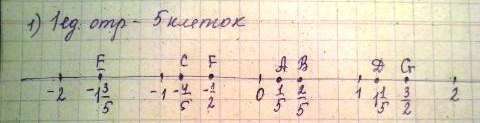 1) 1ед. отр - 5 клеток
E C F A B D G
-2 -1 3/5 -1 -4/5 -1/2 0 1/5 2/5 1 1 1/5 3/2 2